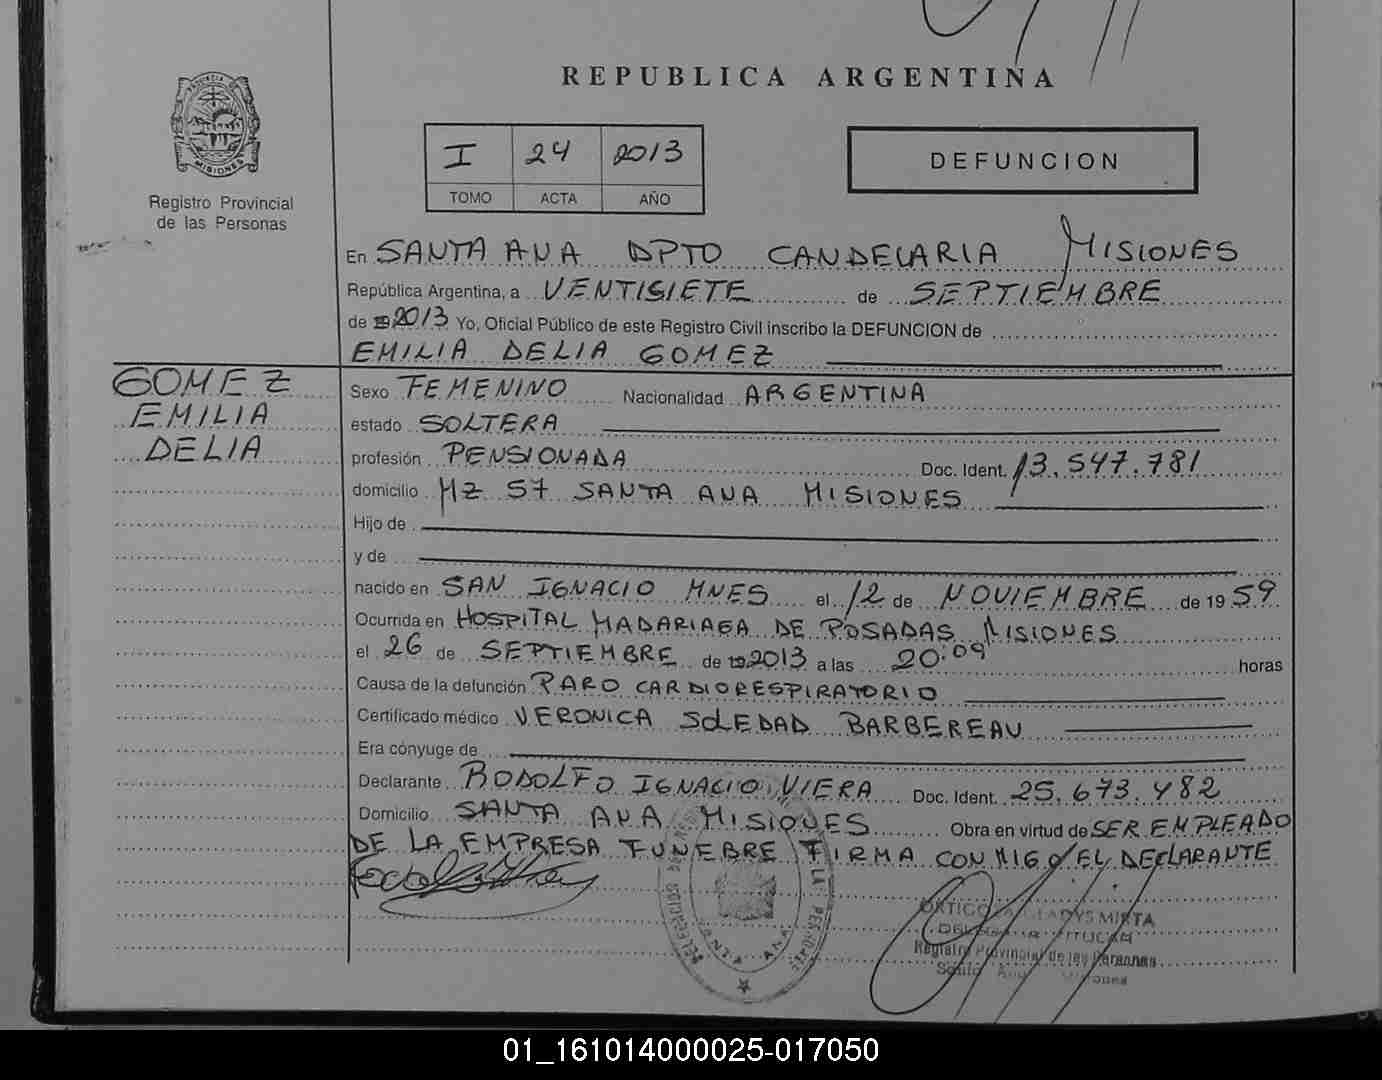 REPUBLICA ARGENTINA
PROVINCIA DE
MISIONES
Registro Provincial
de las Personas
I 24 2013
TOMO ACTA AÑO
DEFUNCION
En SANTA ANA DPTO CANDELARIA MISIONES
República Argentina, a VENTISIETE de SEPTIEMBRE
de 2013 Yo, Oficial Público de este Registro Civil inscribo la DEFUNCION de
EMILIA DELIA GOMEZ
GOMEZ
EMILIA
DELIA
Sexo FEMENINO Nacionalidad ARGENTINA
estado SOLTERA
profesión PENSIONADA Doc. Ident. 13.547.781
domicilio MZ 57 SANTA ANA MISIONES
Hijo de
y de
nacido en SAN IGNACIO MNES el 12 de NOVIEMBRE de 1959
Ocurrida en HOSPITAL MADARIAGA DE POSADAS MISIONES
el 26 de SEPTIEMBRE de 2013 a las 20:09 horas
Causa de la defunción PARO CARDIORESPIRATORIO
Certificado médico VERONICA SOLEDAD BARBEREAU
Era cónyuge de
Declarante RODOLFO IGNACIO VIERA Doc. Ident. 25.673.482
Domicilio SANTA ANA MISIONES Obra en virtud de SER EMPLEADO
DE LA EMPRESA FUNEBRE FIRMA CONMIGO EL DECLARANTE
DELEGACION DE LAS PERSONAS
SANTA ANA
GLADYS MIRTA
Registro Provincial de las Personas
Santa Ana Misiones
01_161014000025-017050